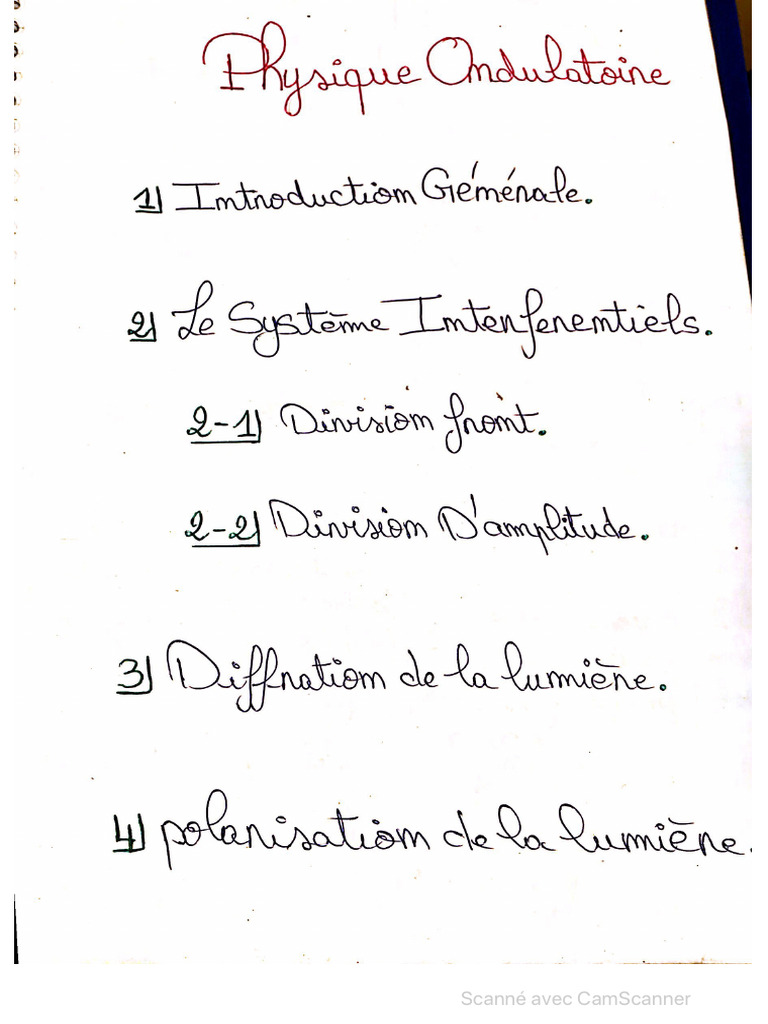 Physique Ondulatoire
1) Introduction Générale.
2) Le Système Interferentiels.
2-1) Division front.
2-2) Division D'amplitude.
3) Diffration de la lumière.
4) polarisation de la lumière.
Scanné avec CamScanner